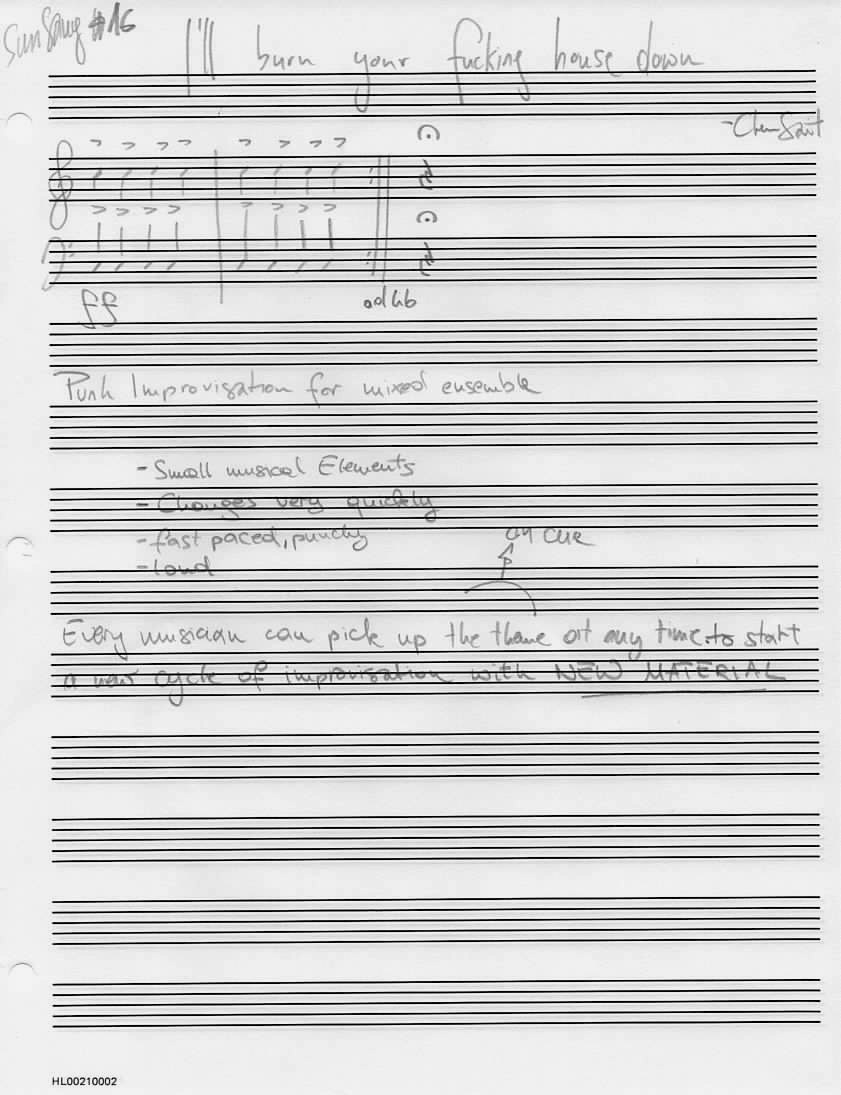 Sun Song #16
I'll burn your fucking house down
ff
ad lib
Punk Improvisation for mixed ensemble
- Small musical Elements
- Changes very quickly
- fast paced, punchy
- Loud
on cue
Every musician can pick up the theme at any time to start
a new cycle of improvisation with NEW MATERIAL
HL00210002